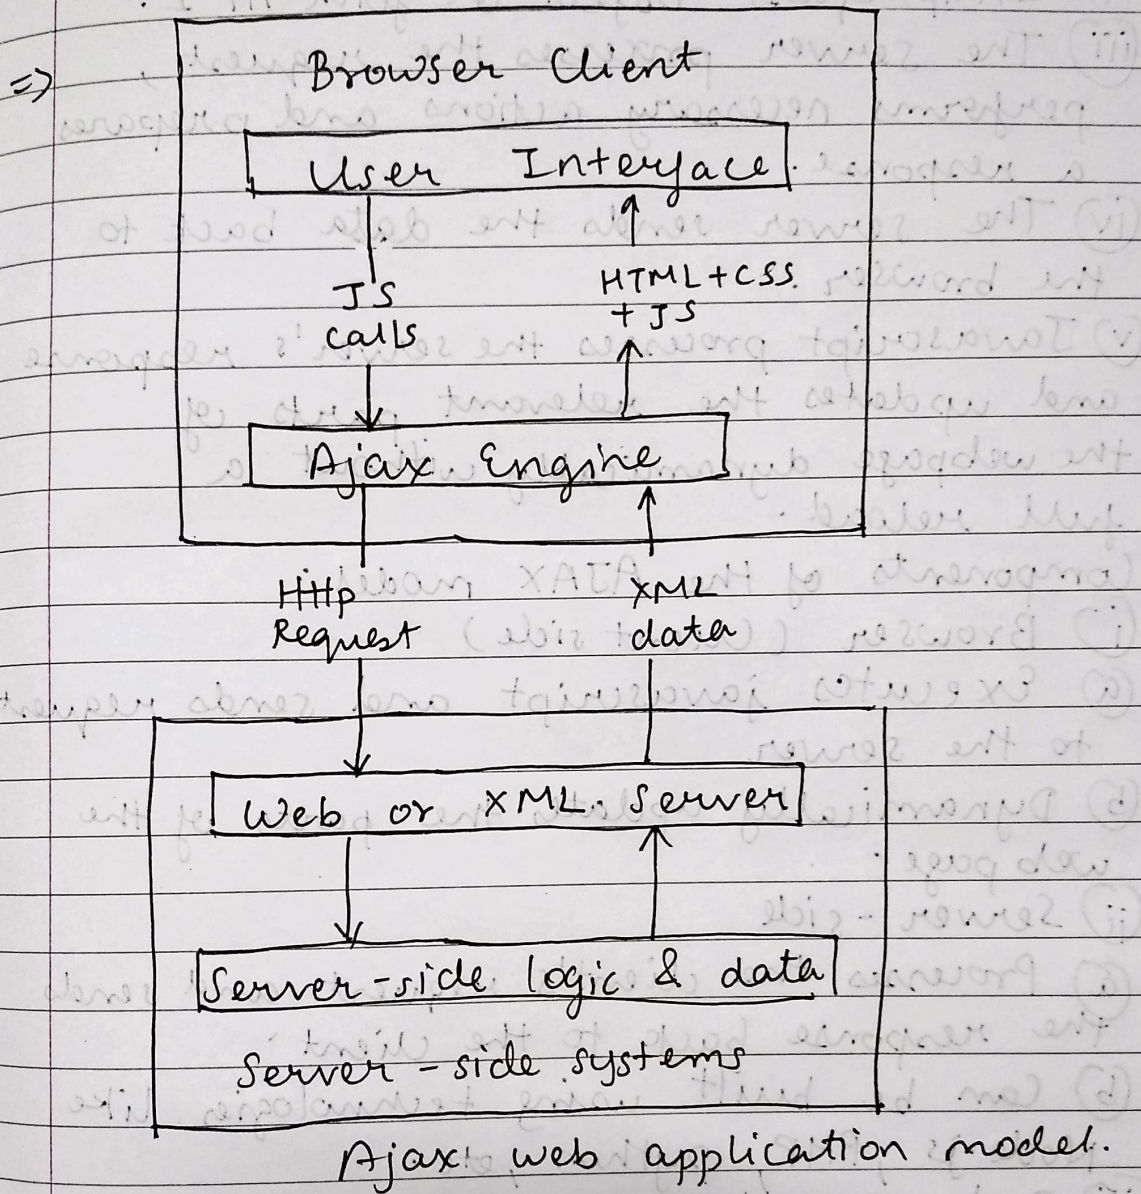 =>
Browser Client
User Interface
JS
calls
HTML+CSS
+ JS
Ajax Engine
Http
Request
XML
data
Web or XML Server
Server-side logic & data
Server-side systems
Ajax web application model.